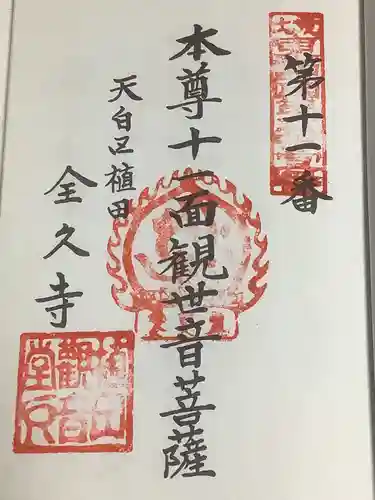 第十一番
本尊十一面観世音菩薩
天白区植田
全久寺